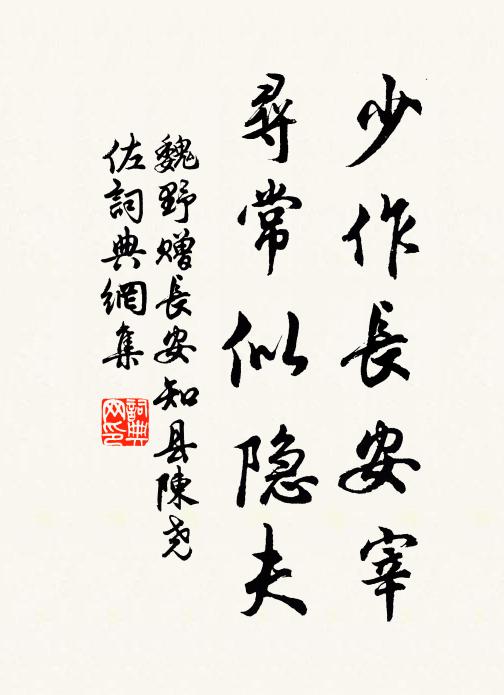 少作長安宰
尋常似隐夫
魏野赠長安知县陳尧
佐詞典網集
詞典
网印